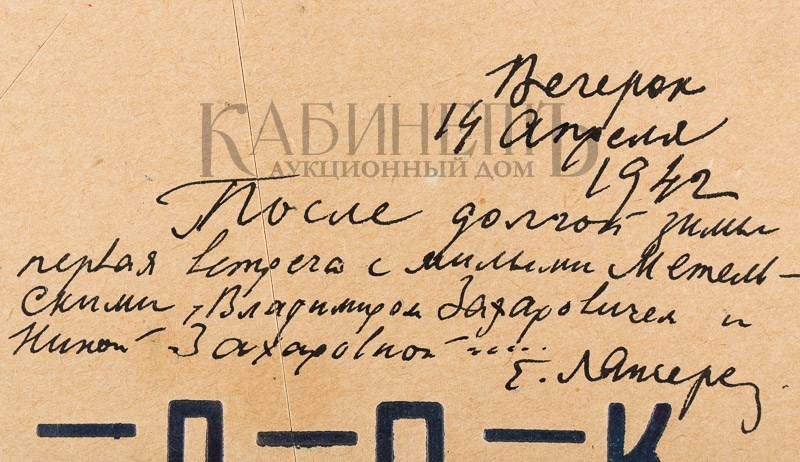 Вечерок
14 Апреля
1942
КАБИНЕТЪ
АУКЦИОННЫЙ ДОМ
После долгой зимы
первая встреча с милыми Метель-
скими, Владимиром Захаровичем и
Ниной Захаровной .....
Е. Лансере